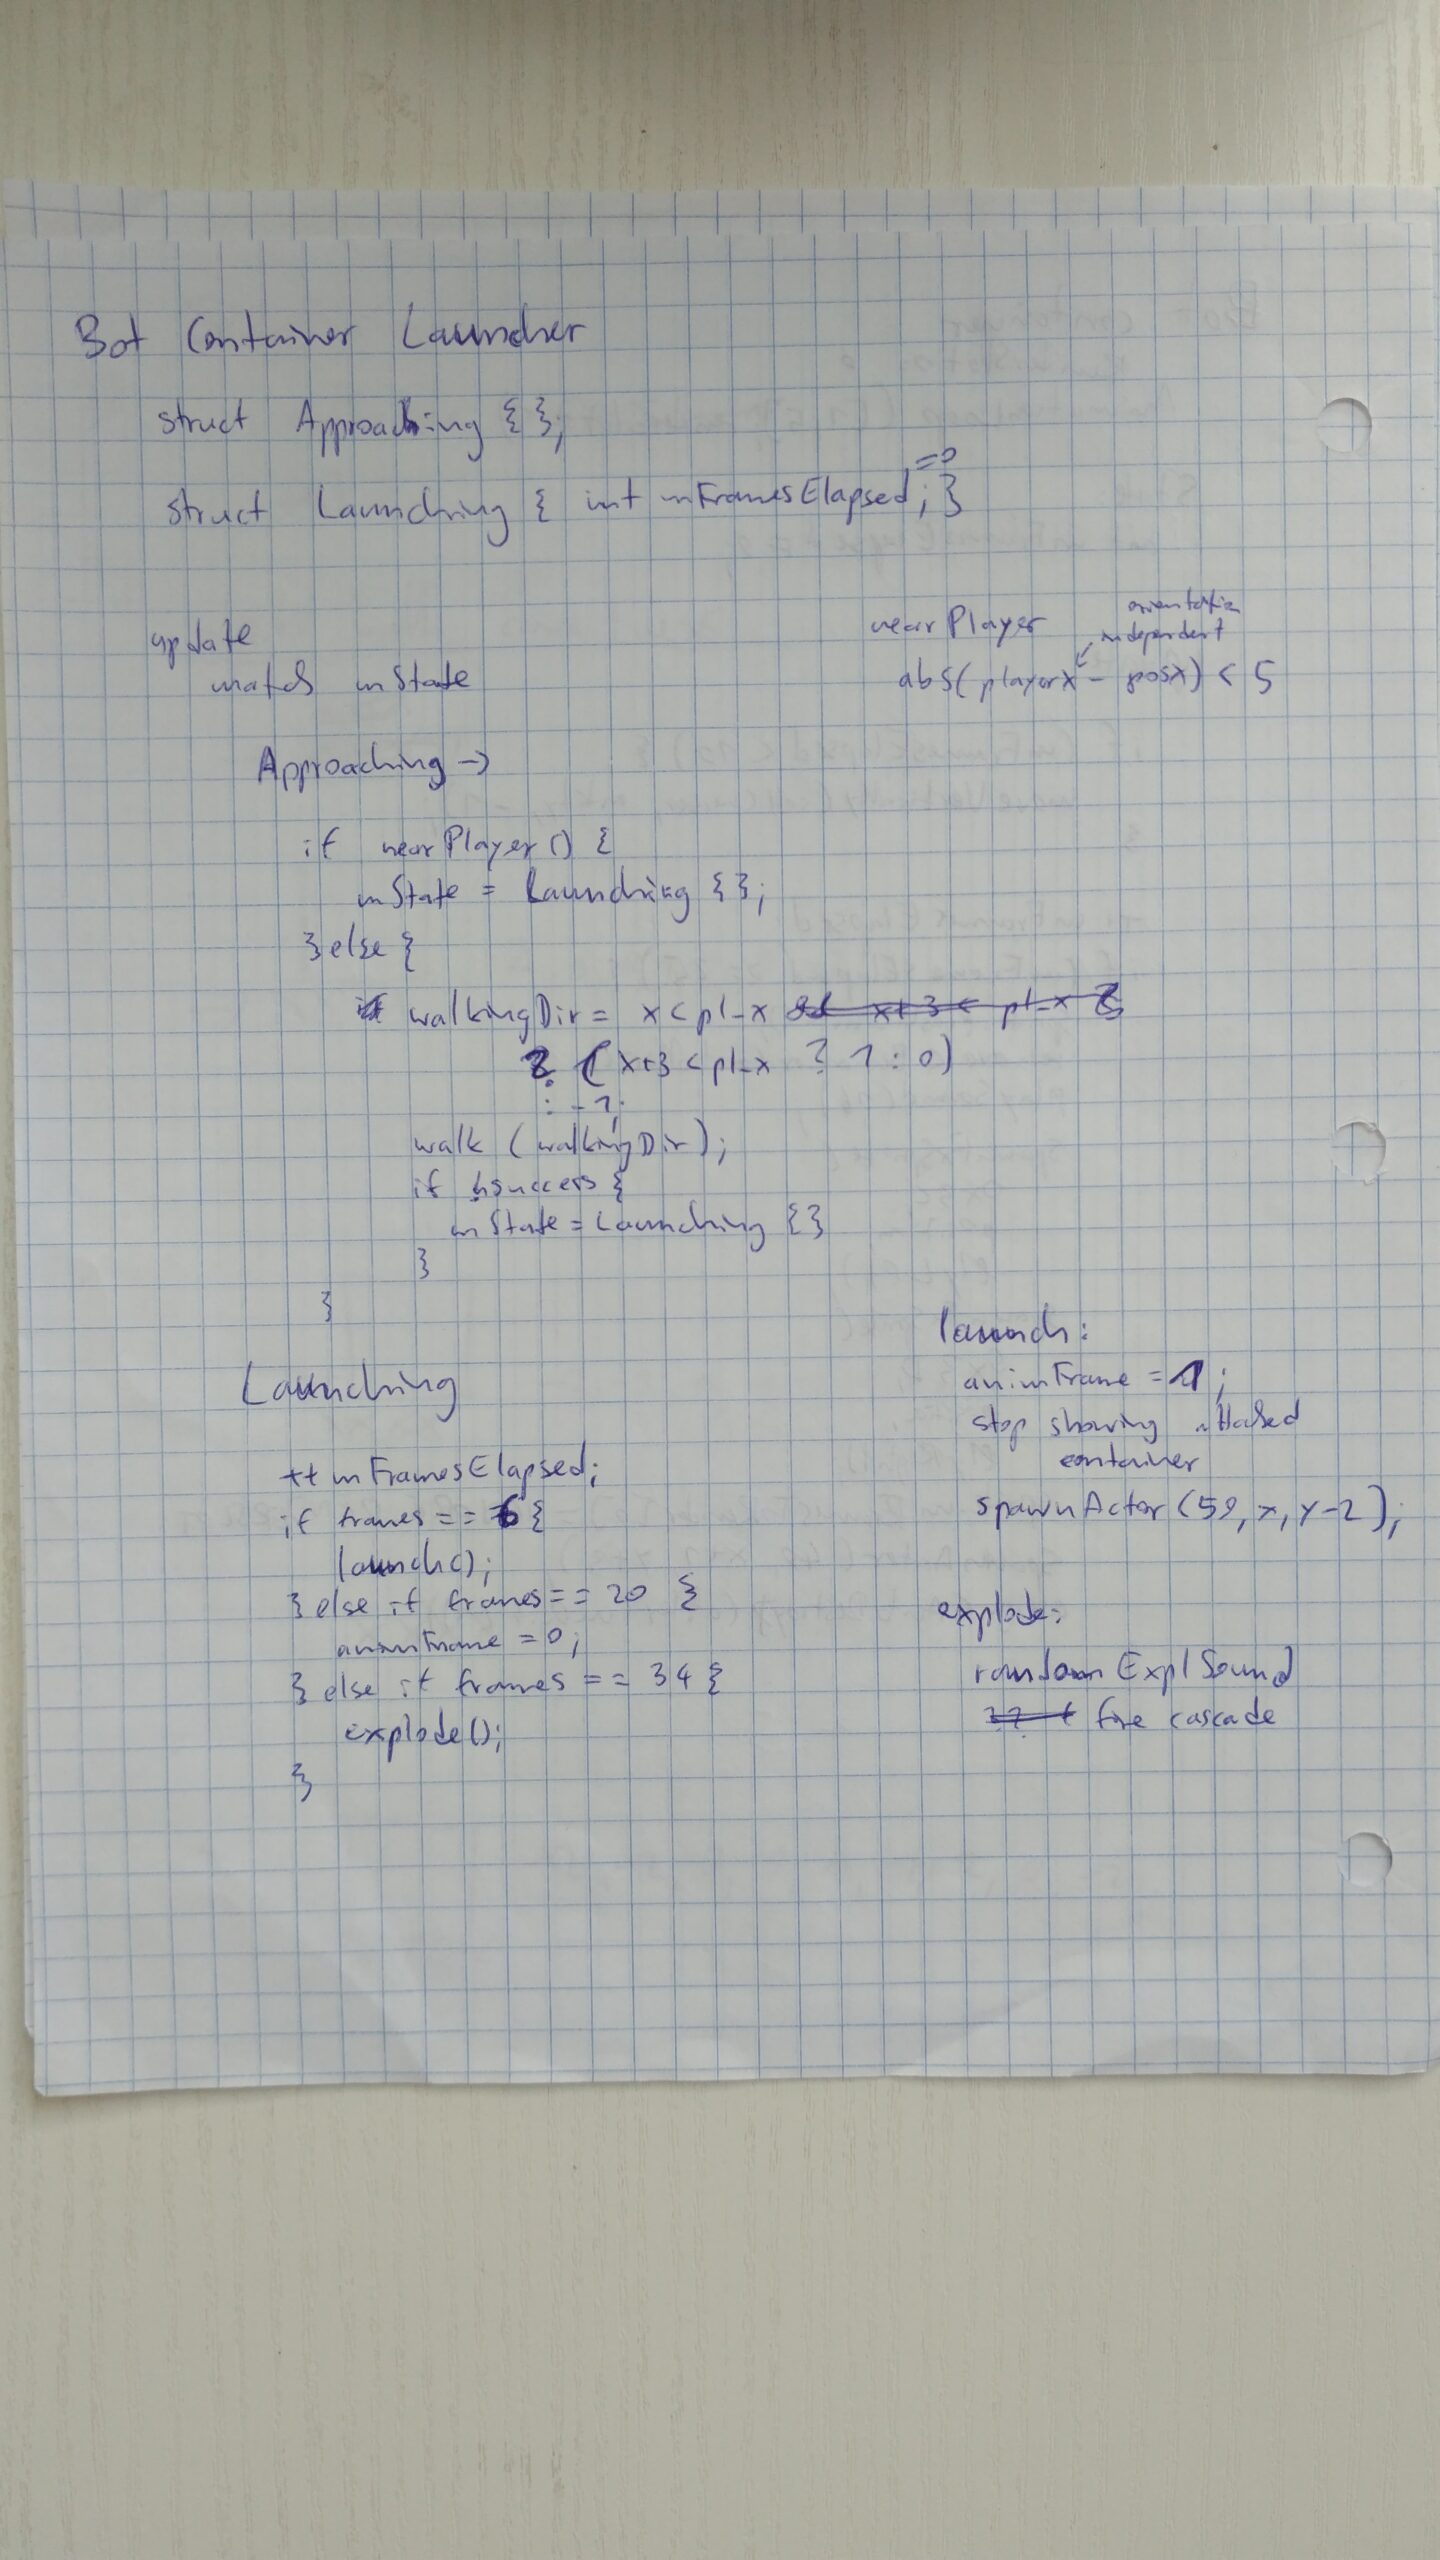 Bot Container Launcher
struct Approaching {};
struct Launching { int mFramesElapsed =0; }
update
match mState
nearPlayer
orientation
independent
abs(playerX - posX) < 5
Approaching ->
if nearPlayer() {
mState = Launching {};
} else {
walkingDir = x < pl_x && x+3 < pl_x ?
? (x+3 < pl_x ? 1 : 0)
: -1;
walk (walkingDir);
if !success {
mState = Launching {}
}
}
Launching
++ mFramesElapsed;
if frames == 6 {
launch();
} else if frames == 20 {
animFrame = 0;
} else if frames == 34 {
explode();
}
launch:
animFrame = 1;
stop showing attached
container
spawnActor (59, x, y-2);
explode:
random Expl Sound
fire cascade